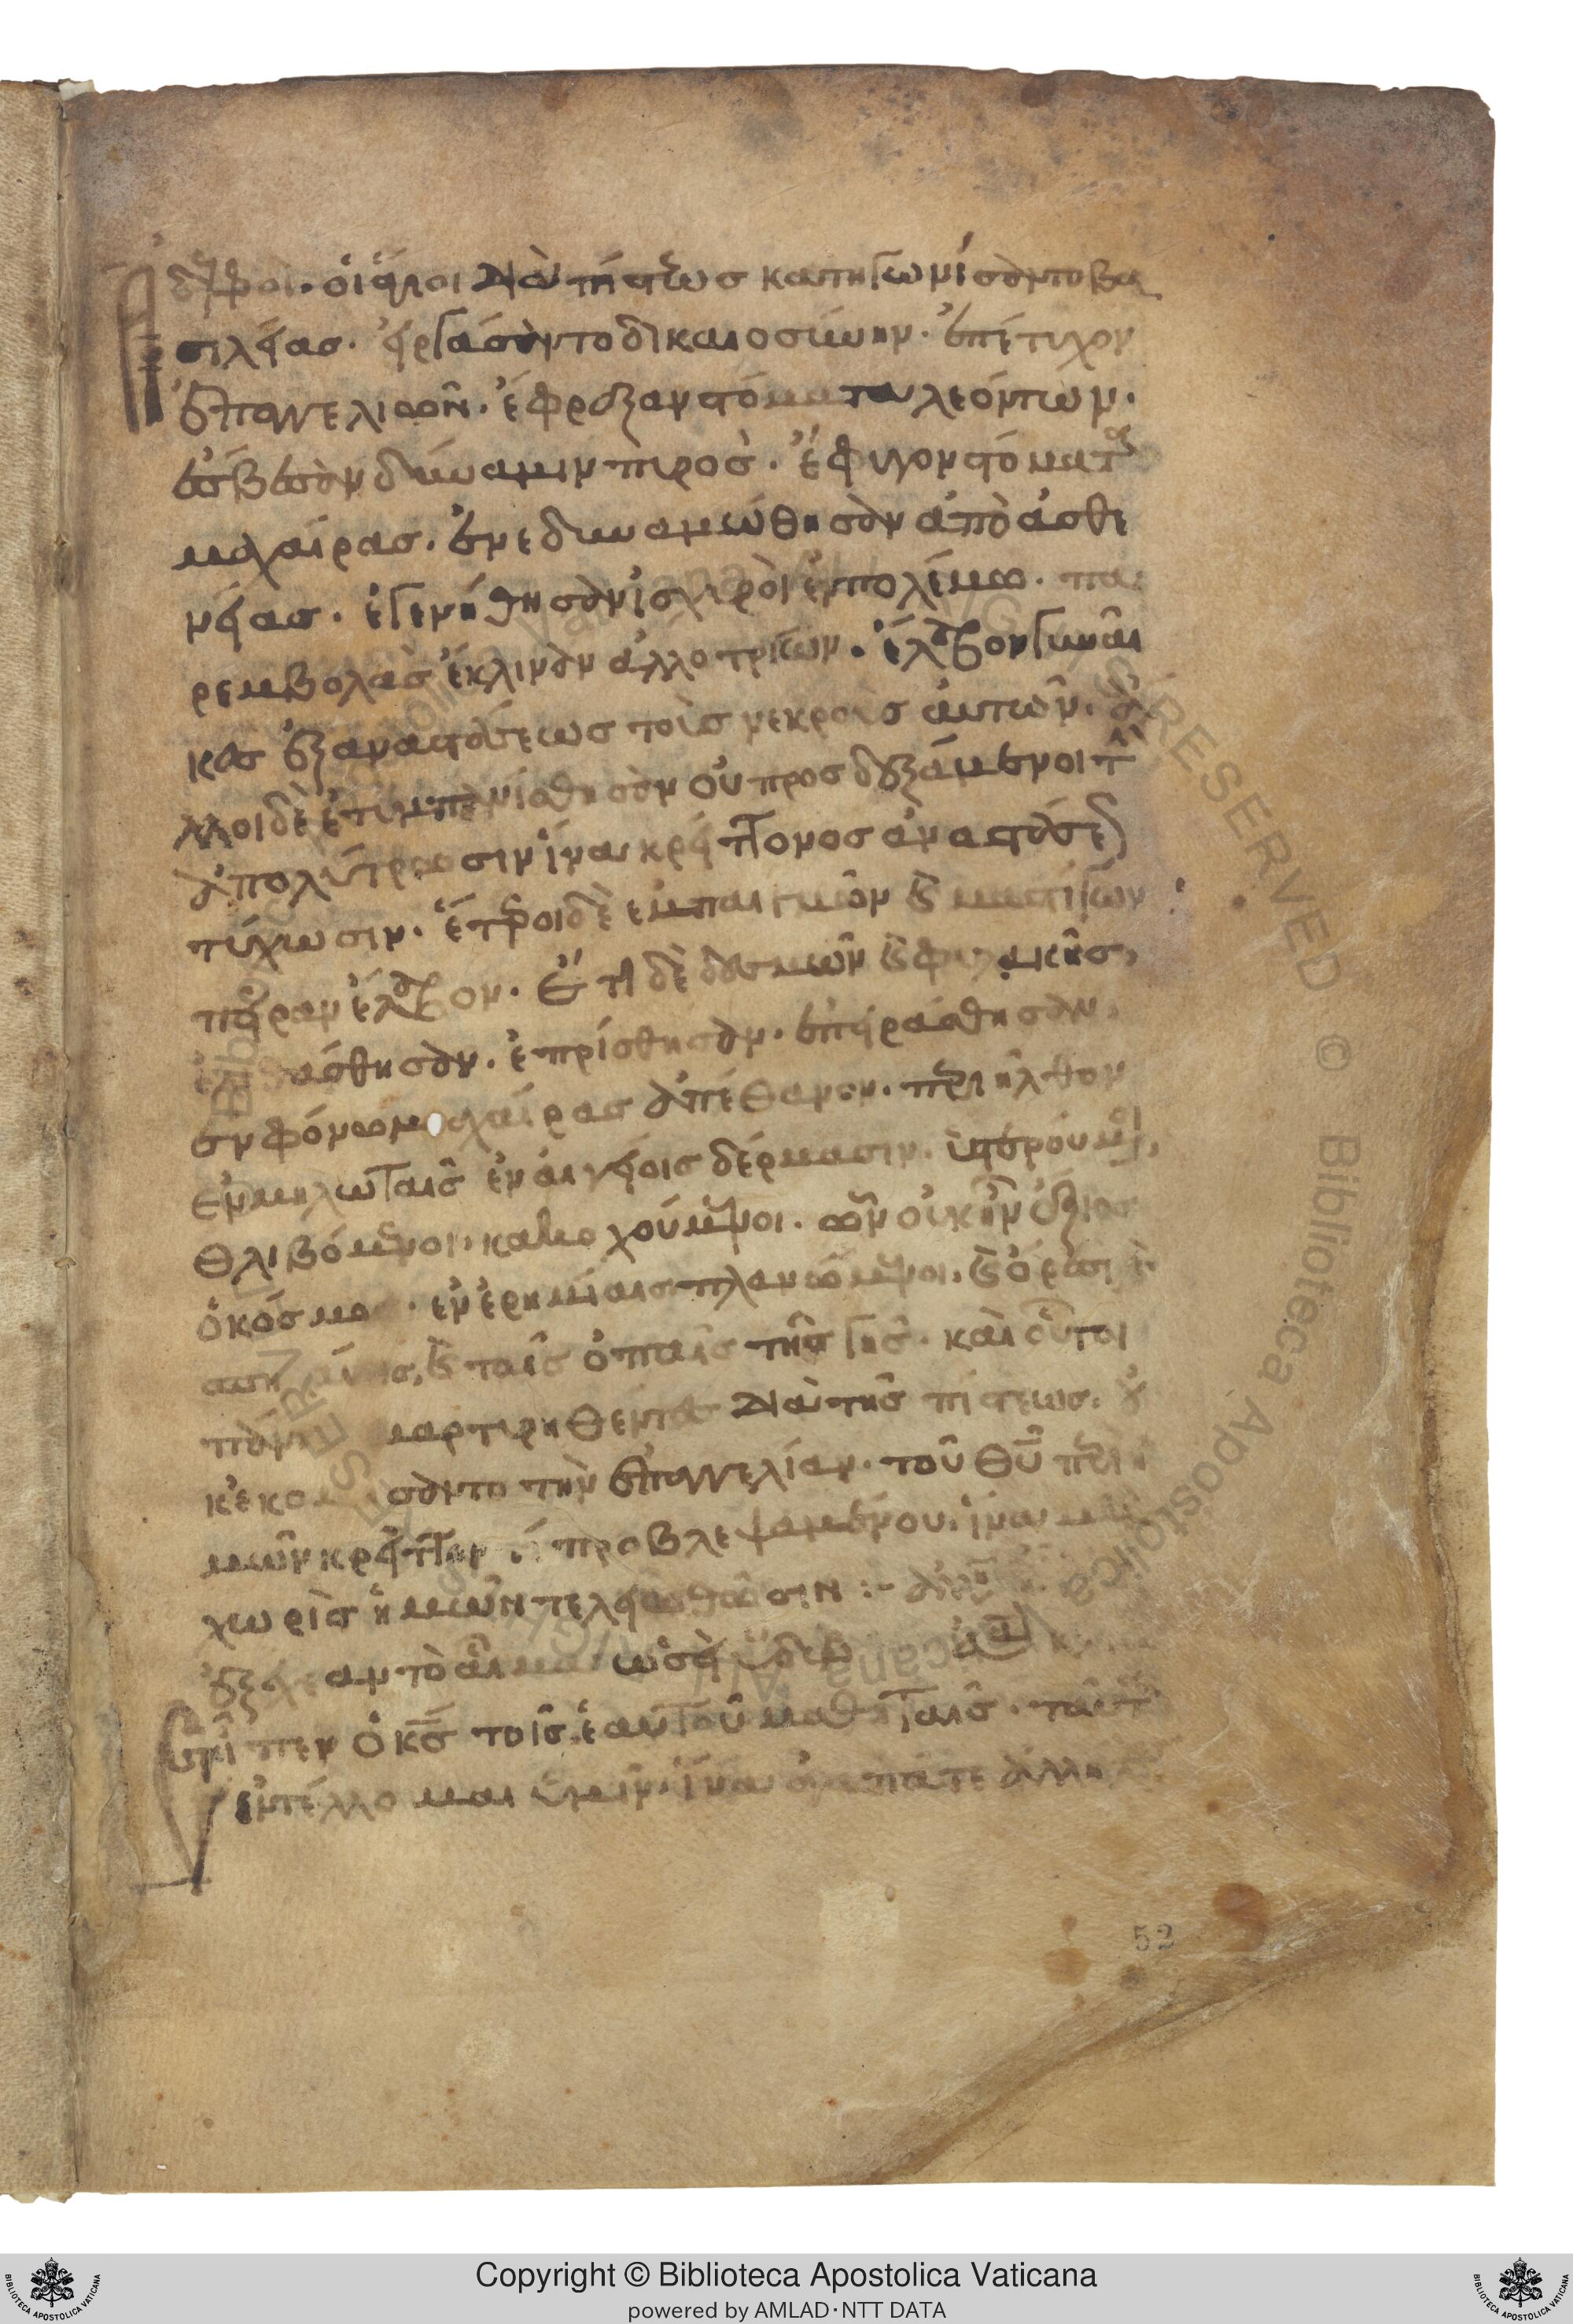 Ἀδελφοὶ· οἱ ἅγιοι διὰ πίστεως κατηγωνίσαντο βα
σιλείας· εἰργάσαντο δικαιοσύνην· ἐπέτυχον
ἐπαγγελιῶν· ἔφραξαν στόματα λεόντων·
ἔσβεσαν δύναμιν πυρὸς· ἔφυγον στόματα
μαχαίρας· ἐνεδυναμώθησαν ἀπὸ ἀσθε
νείας· ἐγενήθησαν ἰσχυροὶ ἐν πολέμω· πα
ρεμβολὰς ἔκλιναν ἀλλοτρίων· ἔλαβον γυναῖ
κες ἐξ ἀναστάσεως τοὺς νεκροὺς αὐτῶν· ἄ
λλοι δὲ ἐτυμπανίσθησαν οὐ προσδεξάμενοι τὴν
ἀπολύτρωσιν ἵνα κρείττονος ἀναστάσεως
τύχωσιν· ἕτεροι δὲ ἐμπαιγμῶν καὶ μαστίγων
πεῖραν ἔλαβον· ἔτι δὲ δεσμῶν καὶ φυλακῆς,
ἐλιθάσθησαν· ἐπρίσθησαν· ἐπειράσθησαν·
ἐν φόνω μαχαίρας ἀπέθανον· περιῆλθον
ἐν μηλωταῖς ἐν αἰγείοις δέρμασιν· ὑστερούμενοι,
θλιβόμενοι· κακοχούμενοι· ὧν οὐκ ἦν ἄξιος
ὁ κόσμος· ἐν ἐρημίαις πλανώμενοι· καὶ ὄρεσι καὶ
σπηλαίοις, καὶ ταῖς ὀπαῖς τῆς γῆς· καὶ οὗτοι
πάντες μαρτυρηθέντες διὰ τῆς πίστεως· οὐ
κ ἐκομίσαντο τὴν ἐπαγγελίαν· τοῦ θῦ περὶ ἡ
μῶν κρεῖττόν τι προβλεψαμένου· ἵνα μὴ
χωρὶς ἡμῶν τελειωθῶσιν :-
ἐξέχεαν τὸ αἷμα ὡσεὶ ὕδωρ
Εἶπεν ὁ κς τοῖς ἑαυτοῦ μαθηταῖς· ταῦτα
ἐντέλλομαι ὑμῖν· ἵνα ἀγαπᾶτε ἀλλή
52
Copyright © Biblioteca Apostolica Vaticana
powered by AMLAD·NTT DATA